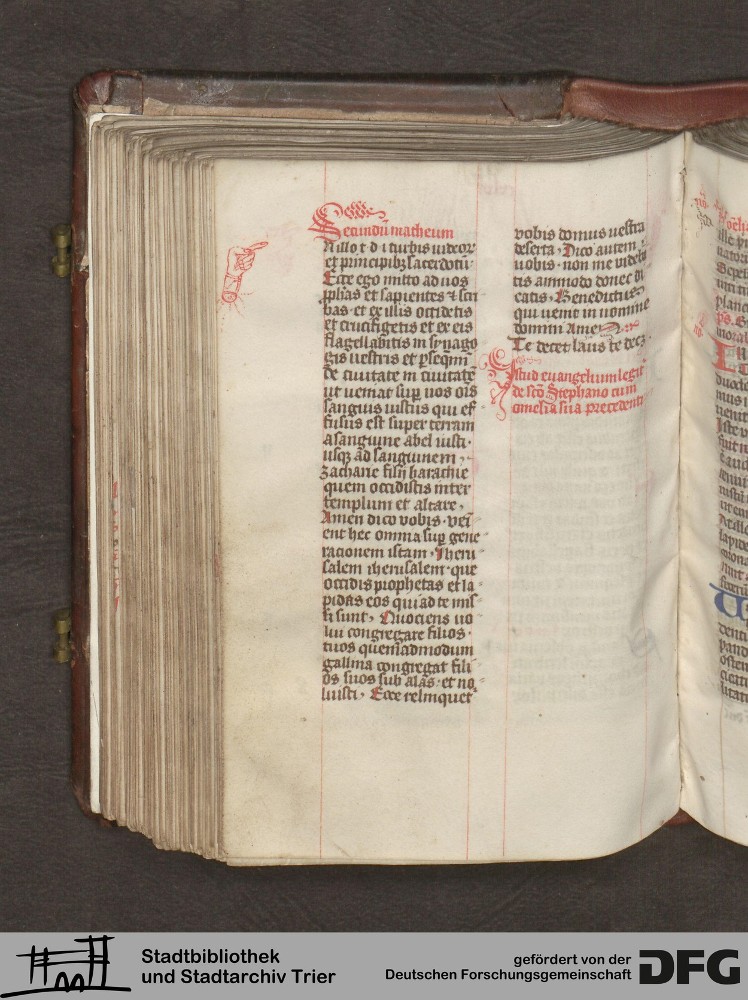 Secundū matheum
In illo t d i turbis iudeor
et principibꝫ sacerdotū
Ecce ego mitto ad uos
ꝓphās et sapientes ⁊ scri
bas · et ex illis occidetis
et crucifigetis et ex eis
flagellabitis in synago
gis uestris et ꝑseqmī
de ciuitate in ciuitatē
ut ueniat suꝑ uos oīs
sanguis iustus qui ef
fusus est super terram
a sanguine abel iusti ·
usqꝫ ad sanguinem
zacharie filij barachie
quem occidistis inter
templum et altare ·
Amen dico vobis · veī
ent hec omnia suꝑ gene
racionem istam · Iheru
salem iherusalem · que
occidis prophetas et la
pidas eos qui ad te mis
si sunt · Quociens uo
lui congregare filios
tuos quemadmodum
gallina congregat fili
os suos sub alas · et no
luisti · Ecce relinquet
vobis domus uestra
deserta · Dico autem
uobis · non me videbi
tis ammodo donec di
catis · Benedictus
qui uenit in nomine
domini Amen
Te decet laus te decꝫ
Istud euangelium legit
de scō Stephano cum
omelia sua precedenti
Stadtbibliothek
und Stadtarchiv Trier
gefördert von der
Deutschen Forschungsgemeinschaft
DFG